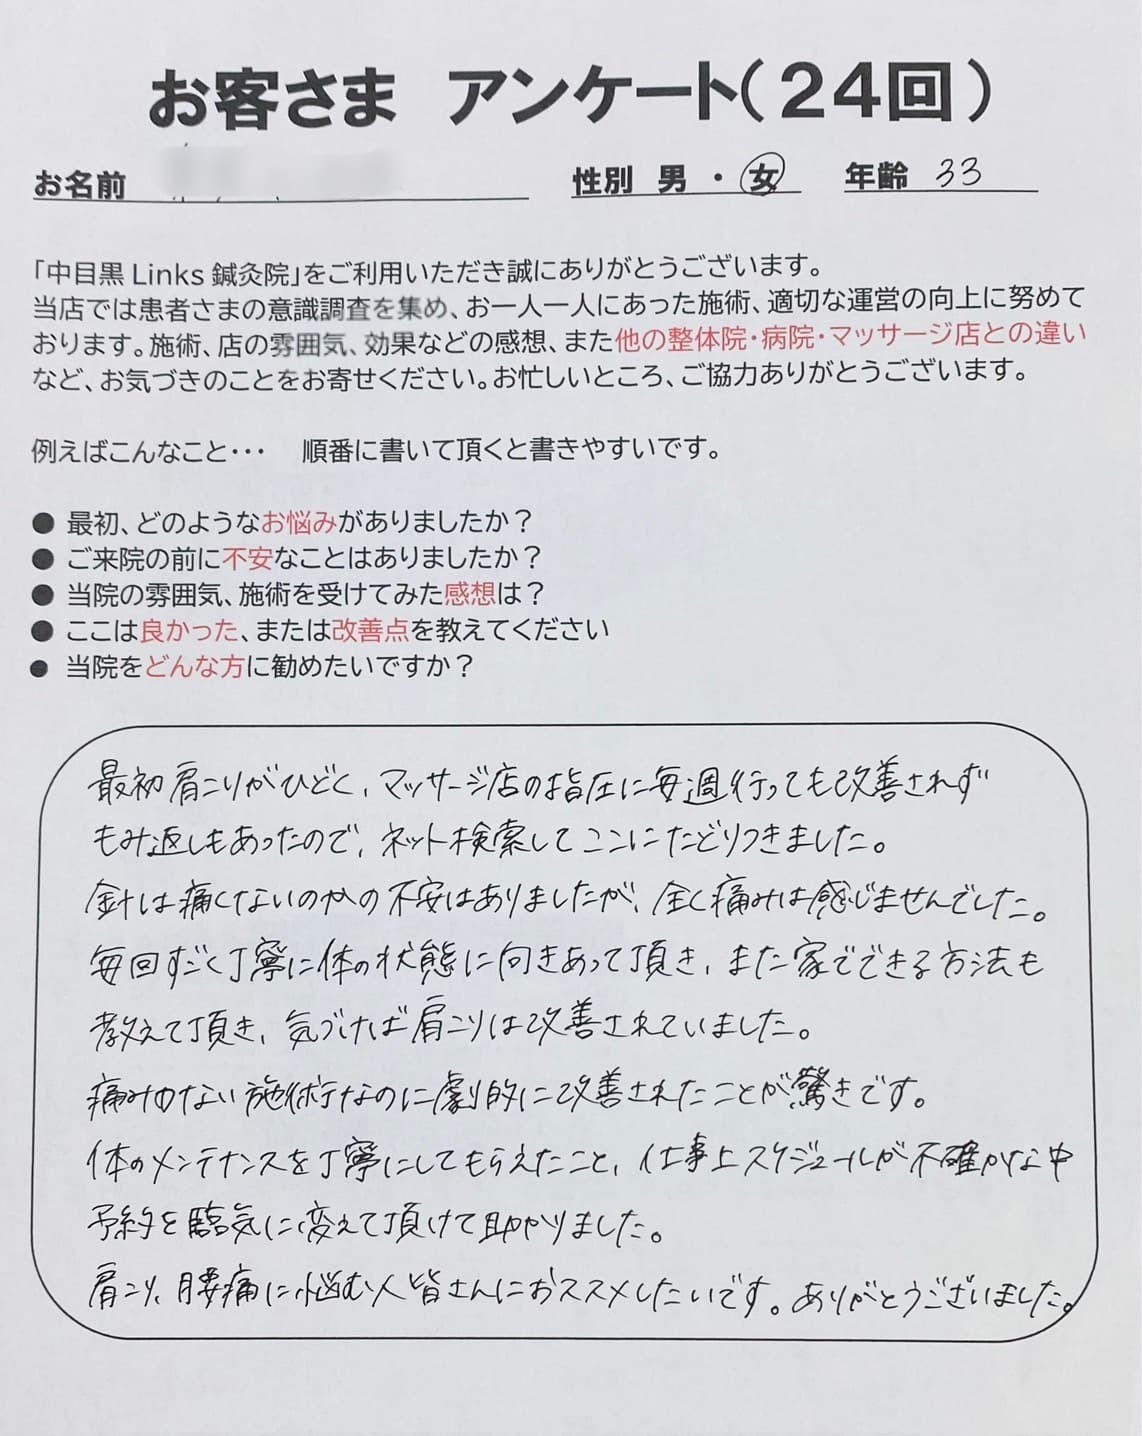 お客さま アンケート（24回）
お名前 性別 男 ・ 女 年齢 33
「中目黒 Links 鍼灸院」をご利用いただき誠にありがとうございます。
当店では患者さまの意識調査を集め、お一人一人にあった施術、適切な運営の向上に努めて
おります。施術、店の雰囲気、効果などの感想、また他の整体院・病院・マッサージ店との違い
など、お気づきのことをお寄せください。お忙しいところ、ご協力ありがとうございます。
例えばこんなこと・・・ 順番に書いて頂くと書きやすいです。
● 最初、どのようなお悩みがありましたか？
● ご来院の前に不安なことはありましたか？
● 当院の雰囲気、施術を受けてみた感想は？
● ここは良かった、または改善点を教えてください
● 当院をどんな方に勧めたいですか？
最初肩こりがひどく、マッサージ店の指圧に毎週行っても改善されず
もみ返しもあったので、ネット検索してここにたどりつきました。
針は痛くないのかの不安はありましたが、全く痛みは感じませんでした。
毎回すごく丁寧に体の状態に向きあって頂き、また家でできる方法も
教えて頂き、気づけば肩こりは改善されていました。
痛みのない施術なのに劇的に改善されたことが驚きです。
体のメンテナンスを丁寧にしてもらえたこと、仕事上スケジュールが不確かな中
予約を臨気に変えて頂けて助かりました。
肩こり、腰痛に悩む人皆さんにおススメしたいです。ありがとうございました。